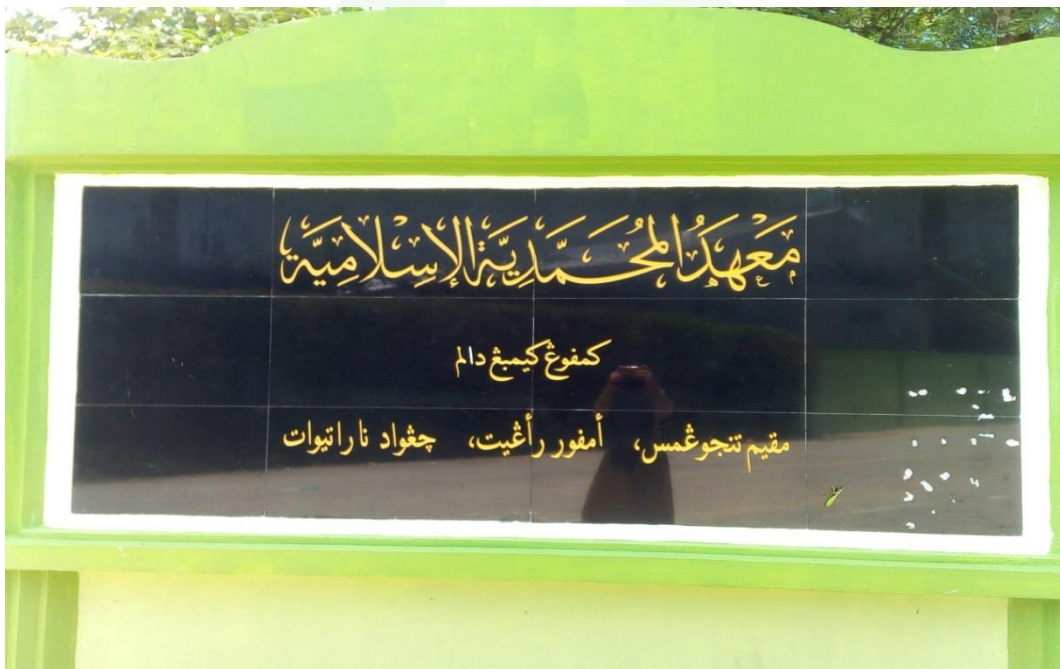 مَعْهَدُ المُحَمَّدِيَّةِ الإِسْلَامِيَّةِ
كمفوڠ كيمبڠ دالم
مقيم تنجوڠمس، أمفور رأڠيت، چڠواد ناراتيوات